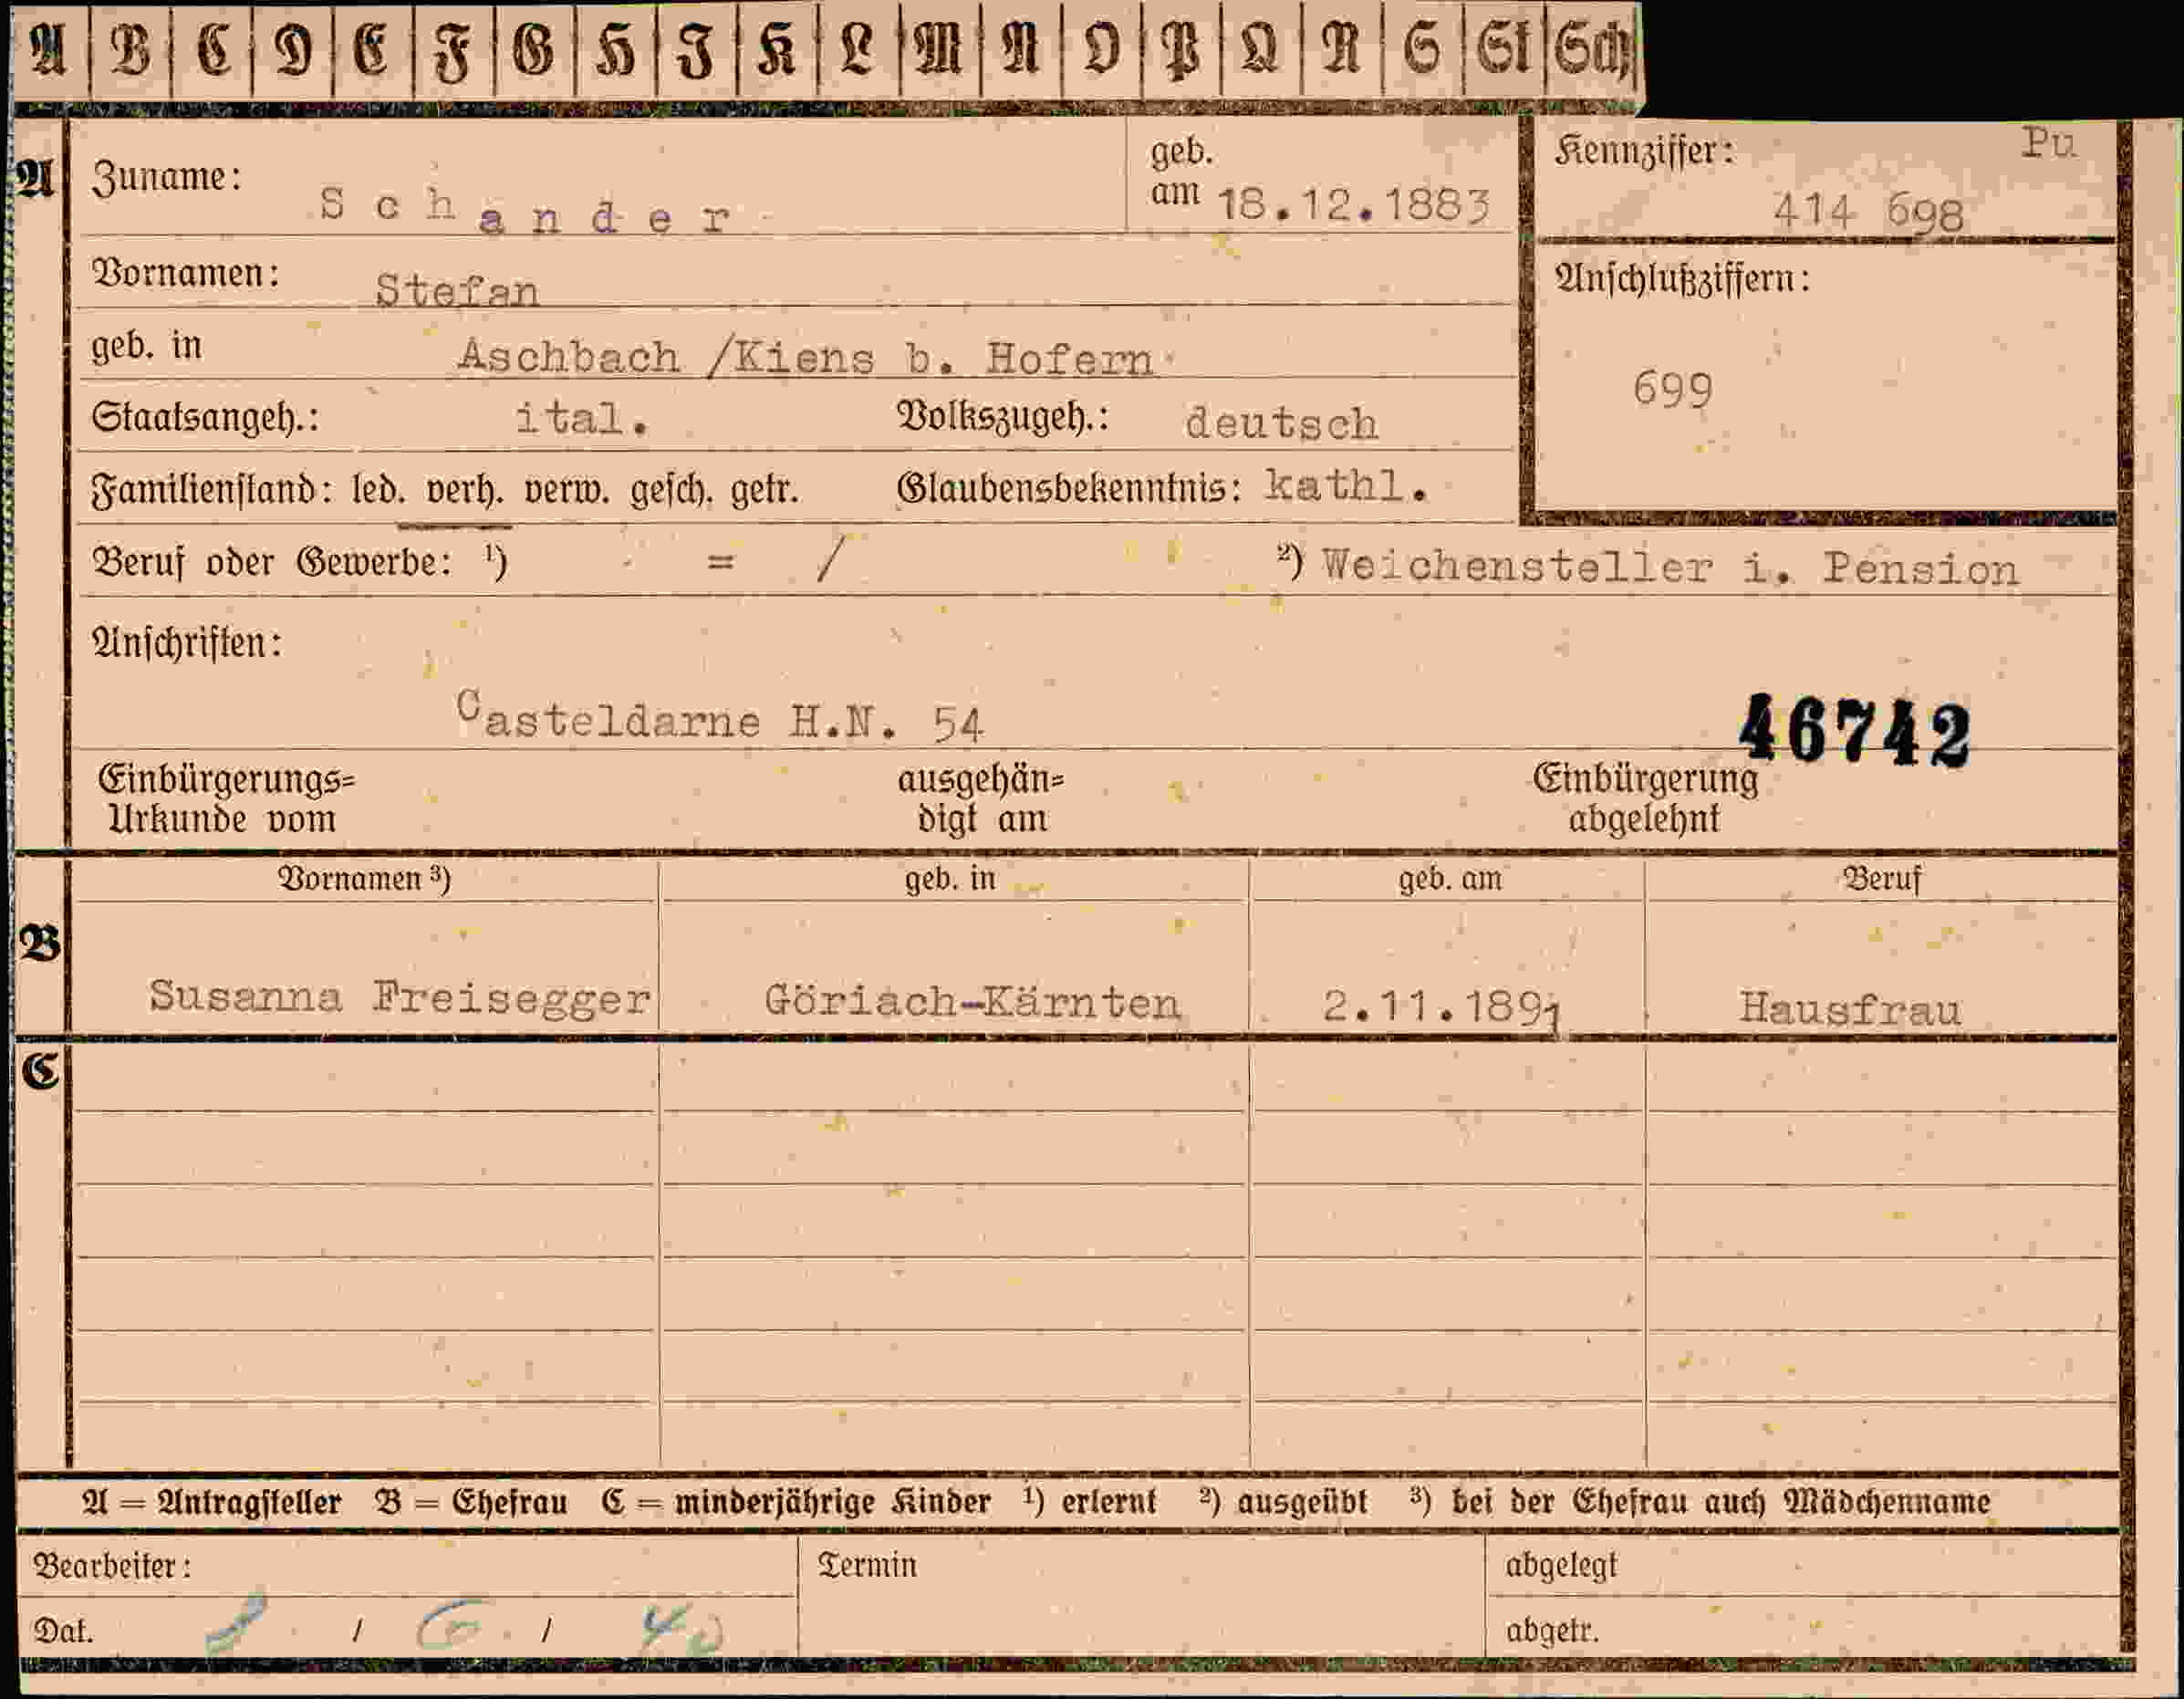 A B C D E F G H I K L M N O P Q R S St Sch
A Zuname: Schander geb. am 18.12.1883
Kennziffer: Pu
414 698
Vornamen: Stefan
Anschlußziffern:
699
geb. in Aschbach /Kiens b. Hofern
Staatsangeh.: ital. Volkszugeh.: deutsch
Familienstand: led. verh. verw. gesch. getr. Glaubensbekenntnis: kathl.
Beruf oder Gewerbe: ¹) = / ²) Weichensteller i. Pension
Anschriften:
Casteldarne H.N. 54 46742
Einbürgerungs= ausgehän= Einbürgerung
Urkunde vom digt am abgelehnt
Vornamen ³) geb. in geb. am Beruf
B
Susanna Freisegger Göriach-Kärnten 2.11.1891 Hausfrau
C
A = Antragsteller B = Ehefrau C = minderjährige Kinder ¹) erlernt ²) ausgeübt ³) bei der Ehefrau auch Mädchenname
Bearbeiter: Termin abgelegt
Dat. / 6. / 40 abgetr.